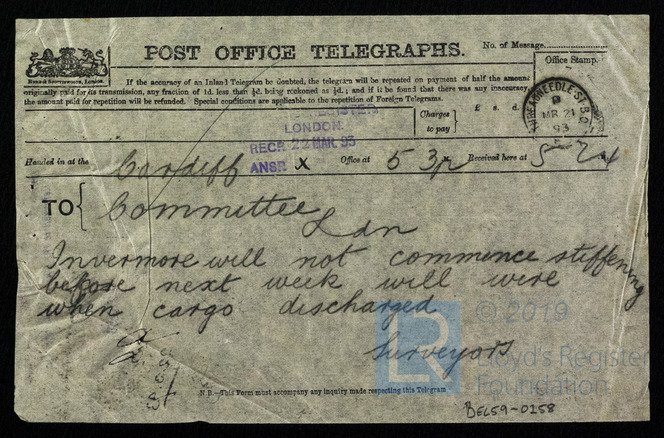 POST OFFICE TELEGRAPHS.
No. of Message
Office Stamp.
If the accuracy of an Inland Telegram be doubted, the telegram will be repeated on payment of half the amount
originally paid for its transmission, any fraction of 1d. less than ½d. being reckoned as ½d.; and if it be found that there was any inaccuracy,
the amount paid for repetition will be refunded. Special conditions are applicable to the repetition of Foreign Telegrams.
THREADNEEDLE ST. B.O.
MR 21
93
£ s. d.
Charges to pay
LONDON.
RECD. 22 MAR. 93
ANSR. X
Handed in at the Cardiff Office at 5 3p Received here at
TO { Committee
Ldn
Invermore will not commence stiffening
before next week will were
when cargo discharged
Surveyors
© 2019
LR
Lloyd's Register
Foundation
N.B.—This Form must accompany any inquiry made respecting this Telegram.
BEL59-0258